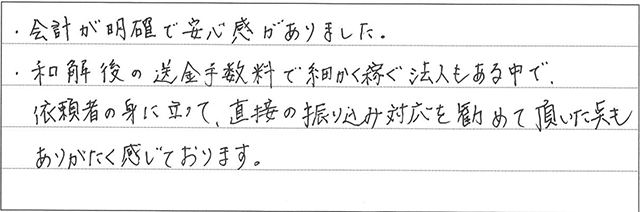 ・会計が明確で安心感がありました。
・和解後の送金手数料で細かく稼ぐ法人もある中で、
依頼者の身に立って、直接の振り込み対応を勧めて頂いた点も
ありがたく感じております。